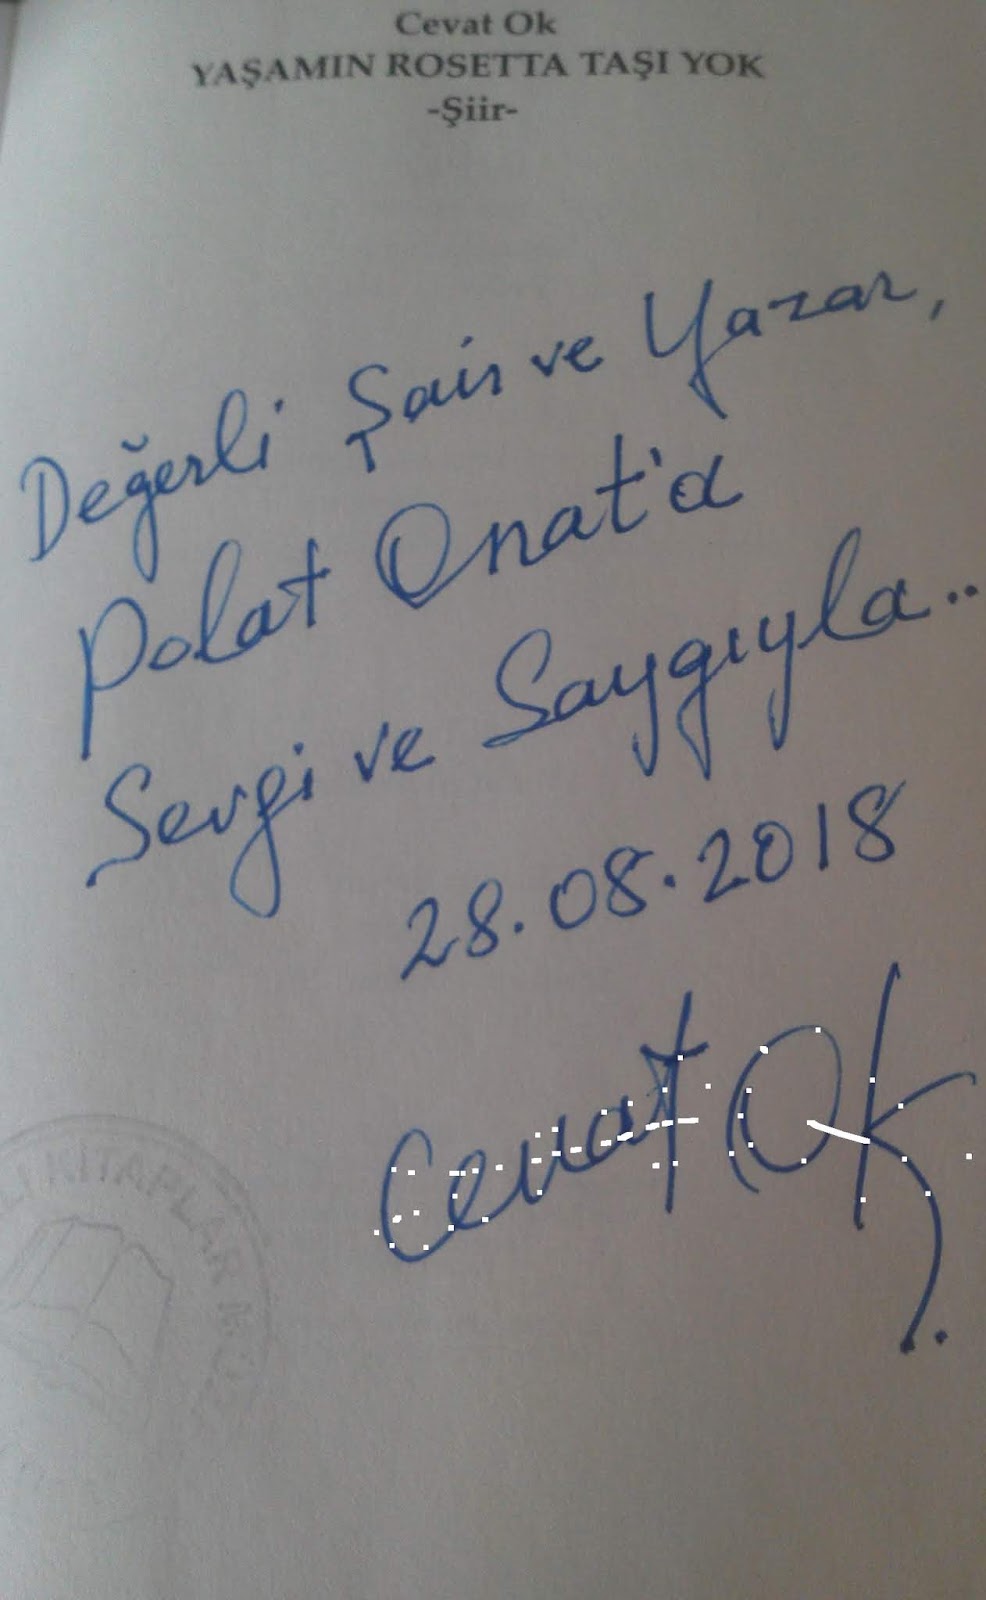 Cevat Ok
YAŞAMIN ROSETTA TAŞI YOK
-Şiir-
Değerli Şair ve Yazar,
Polat Onat'a
Sevgi ve Saygıyla..
28.08.2018
Cevat Ok
KİTAPLAR